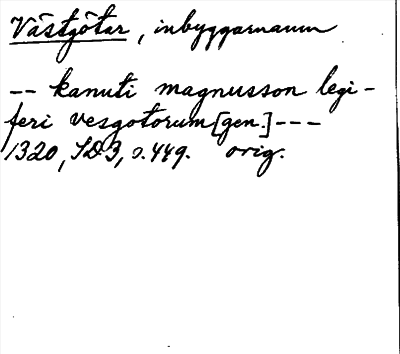 Västgötar, inbyggarnamn
-- kanuti magnusson legi-
feri vesgotorum [gen.] ---
1320, SD 3, s. 449. orig.